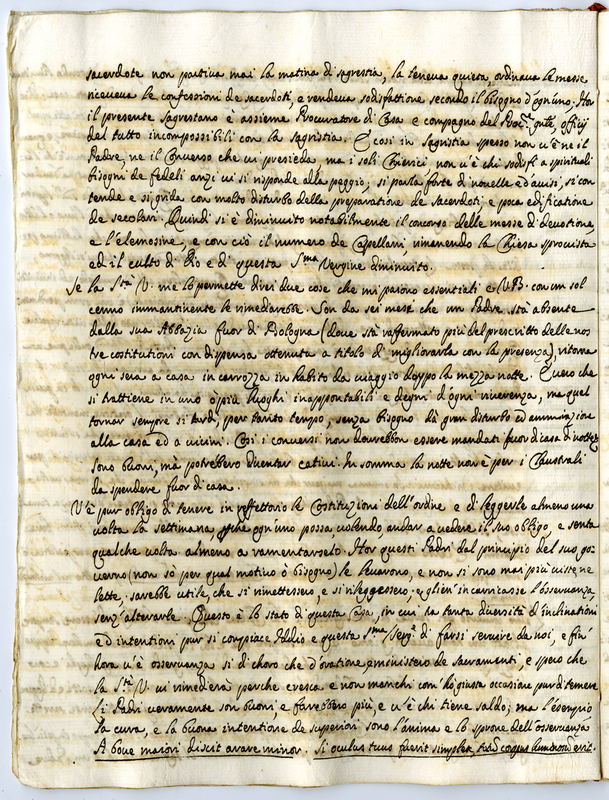 sacerdote non partiva mai la matina di sagrestia, la teneva quieta, ordinava le messe
riceveva le confessioni de sacerdoti, e rendeva sodisfattione secondo il bisogno d'ognuno. Hor
il presente sagrestano è assieme Procuratore di Casa e compagno del officij
del tutto incompossibili con la sagristia. E così in sagristia spesso non v'è ne il
Padre, ne il Converso che vi presieda, ma i soli Chierici, non v'è chi sodisfi a spirituali
bisogni de fedeli anzi vi si risponde alla peggio, si parla forte di novelle ed avvisi, si con
tende e si grida con molto disturbo della preparatione de sacerdoti e poca edificatione
de secolari. Quindi si è diminuito notabilmente il concorso delle messe di devotione
e l'elemosine, e con ciò il numero de Capellani, rimanendo la Chiesa sprovista
ed il culto di Dio e di questa Sma Vergine diminuito.
Se la Stà V. me lo permette direi due cose che mi paiono essentiali e V.B. con un sol
cenno immantinente le rimediarebbe. Son da sei mesi che un Padre stà absente
dalla sua Abbazia fuor di Bologna (dove stà raffermato più del prescritto delle nos
tre costitutioni con dispensa ottenuta a titolo di migliorarla con la presenza), ritorna
ogni sera a casa in carrozza in habito da viaggio doppo la mezza notte. È vero che
si trattiene in uno ò più luoghi inappontabili e degni d'ogni riverenza, ma quel
tornar sempre sì tardi, per tanto tempo, senza bisogno dà gran disturbo ed ammiratione
alla casa ed a vicini. Così i conversi non dovrebbon essere mandati fuor di casa di notte
sono buoni, mà potrebbero diventar cativi. In somma la notte non è per i Claustrali
da spendere fuor di casa.
V'è pur obligo di tenere in reffettorio le Costitutioni dell'ordine e di leggerle almeno una
volta la settimana, che ogn'uno possa, volendo, andar a vedere il suo obligo, e senta
qualche volta almeno a ramentarselo. Hor questi Padri dal principio del suo go
verno (non sò per qual motivo ò bisogno) le levarono, e non si sono mai più viste, ne
lette. sarebbe utile, che si rimettessero, e si rileggessero, e glien' incarricasse l'osservanza
senz' alterarle. Questo è lo stato di questa Casa, in cui la tanta diversità d'inclinationi
ed intentioni pur si compiace Iddio e questa Sma Verge di farsi servire da noi, e fin'
hora v'è osservanza sì di choro che d'oratione, e ministero de Sacramenti, e spero che
la Stà V. vi rimedierà perche cresca e non manchi com' hò giusta occasione pur di temere
(i Padri veramente son buoni, e farebbero più, e v'è chi tiene saldo; ma l'esempio
la cura, e la buona intentione de superiori sono l'anima e lo sprone dell'osservanza
A bove maiori discit arare minor. Si oculus tuus fuerit simplex, totum corpus lucidum erit.